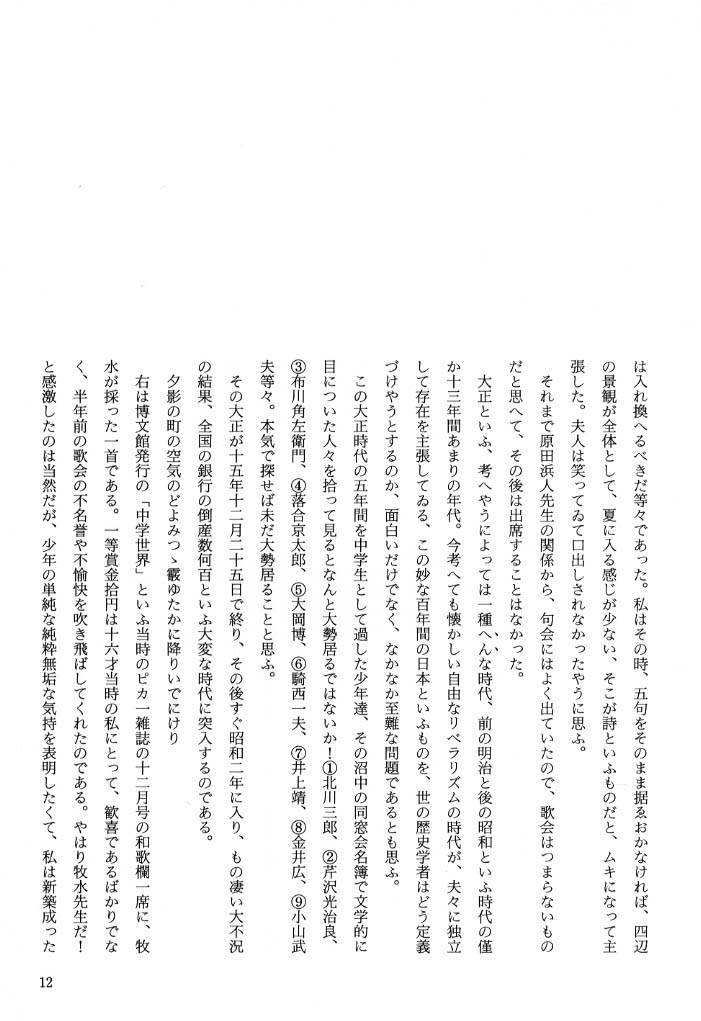 は入れ換へるべきだ等々であった。私はその時、五句をそのまま据ゑおかなければ、四辺
の景観が全体として、夏に入る感じが少ない、そこが詩といふものだと、ムキになって主
張した。夫人は笑ってゐて口出しされなかったやうに思ふ。
それまで原田浜人先生の関係から、句会にはよく出ていたので、歌会はつまらないもの
だと思へて、その後は出席することはなかった。
大正といふ、考へやうによっては一種へんな時代、前の明治と後の昭和といふ時代の僅
か十三年間あまりの年代。今考へても懐かしい自由なリベラリズムの時代が、夫々に独立
して存在を主張してゐる、この妙な百年間の日本といふものを、世の歴史学者はどう定義
づけやうとするのか、面白いだけでなく、なかなか至難な問題であるとも思ふ。
この大正時代の五年間を中学生として過した少年達、その沼中の同窓会名簿で文学的に
目についた人々を拾って見るとなんと大勢居るではないか！①北川三郎、②芹沢光治良、
③布川角左衛門、④落合京太郎、⑤大岡博、⑥騎西一夫、⑦井上靖、⑧金井広、⑨小山武
夫等々。本気で探せば未だ大勢居ることと思ふ。
その大正が十五年十二月二十五日で終り、その後すぐ昭和二年に入り、もの凄い大不況
の結果、全国の銀行の倒産数何百といふ大変な時代に突入するのである。
夕影の町の空気のどよみつゝ靄ゆたかに降りいでにけり
右は博文館発行の「中学世界」といふ当時のピカ一雑誌の十二月号の和歌欄一席に、牧
水が採った一首である。一等賞金拾円は十六才当時の私にとって、歓喜であるばかりでな
く、半年前の歌会の不名誉や不愉快を吹き飛ばしてくれたのである。やはり牧水先生だ！
と感激したのは当然だが、少年の単純な純粋無垢な気持を表明したくて、私は新築成った
12